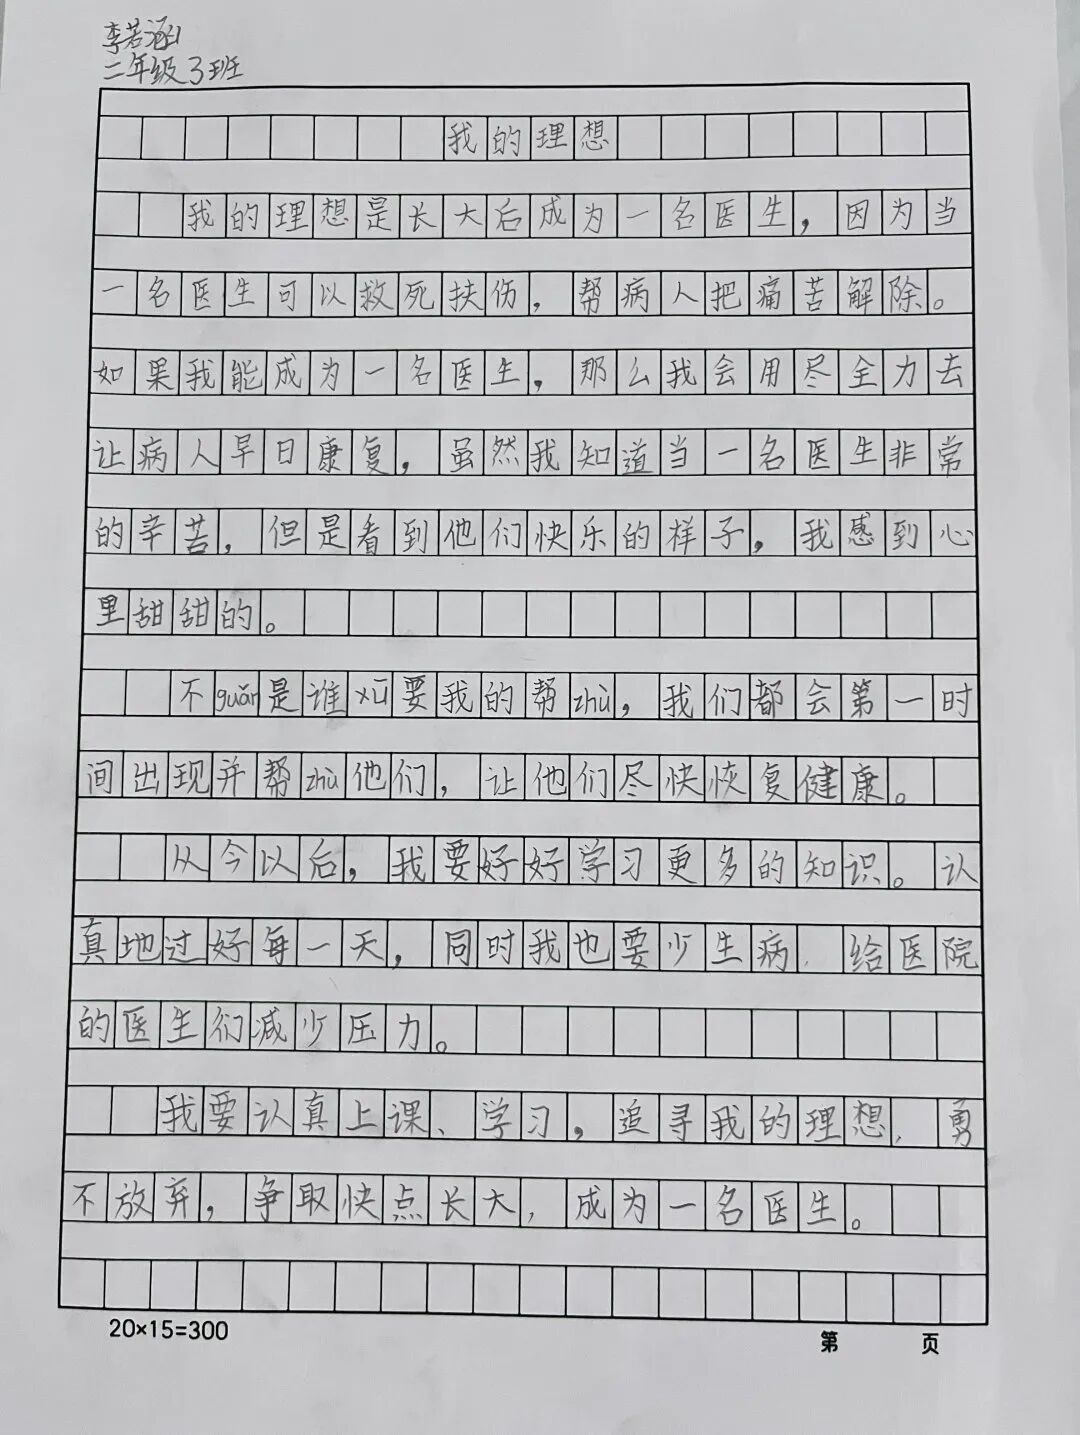 李若涵
二年级3班
我的理想
我的理想是长大后成为一名医生，因为当
一名医生可以救死扶伤，帮病人把痛苦解除。
如果我能成为一名医生，那么我会用尽全力去
让病人早日康复，虽然我知道当一名医生非常
的辛苦，但是看到他们快乐的样子，我感到心
里甜甜的。
不guǎn是谁xū要我的帮zhù，我们都会第一时
间出现并帮zhù他们，让他们尽快恢复健康。
从今以后，我要好好学习更多的知识。认
真地过好每一天，同时我也要少生病，给医院
的医生们减少压力。
我要认真上课、学习，追寻我的理想，勇
不放弃，争取快点长大，成为一名医生。
20×15=300
第 页